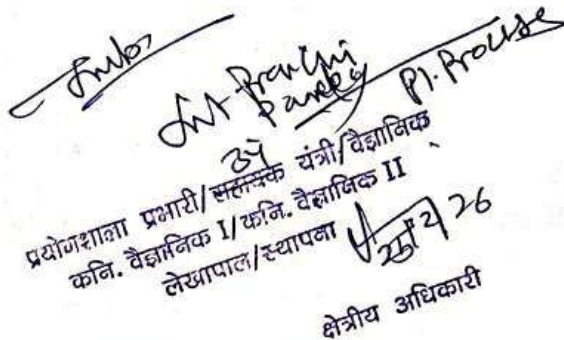 Smt. Prachi
Pandey
Pl. Process
प्रयोगशाला प्रभारी/सहायक यंत्री/वैज्ञानिक
कनि. वैज्ञानिक I/कनि. वैज्ञानिक II
लेखापाल/स्थापना
क्षेत्रीय अधिकारी